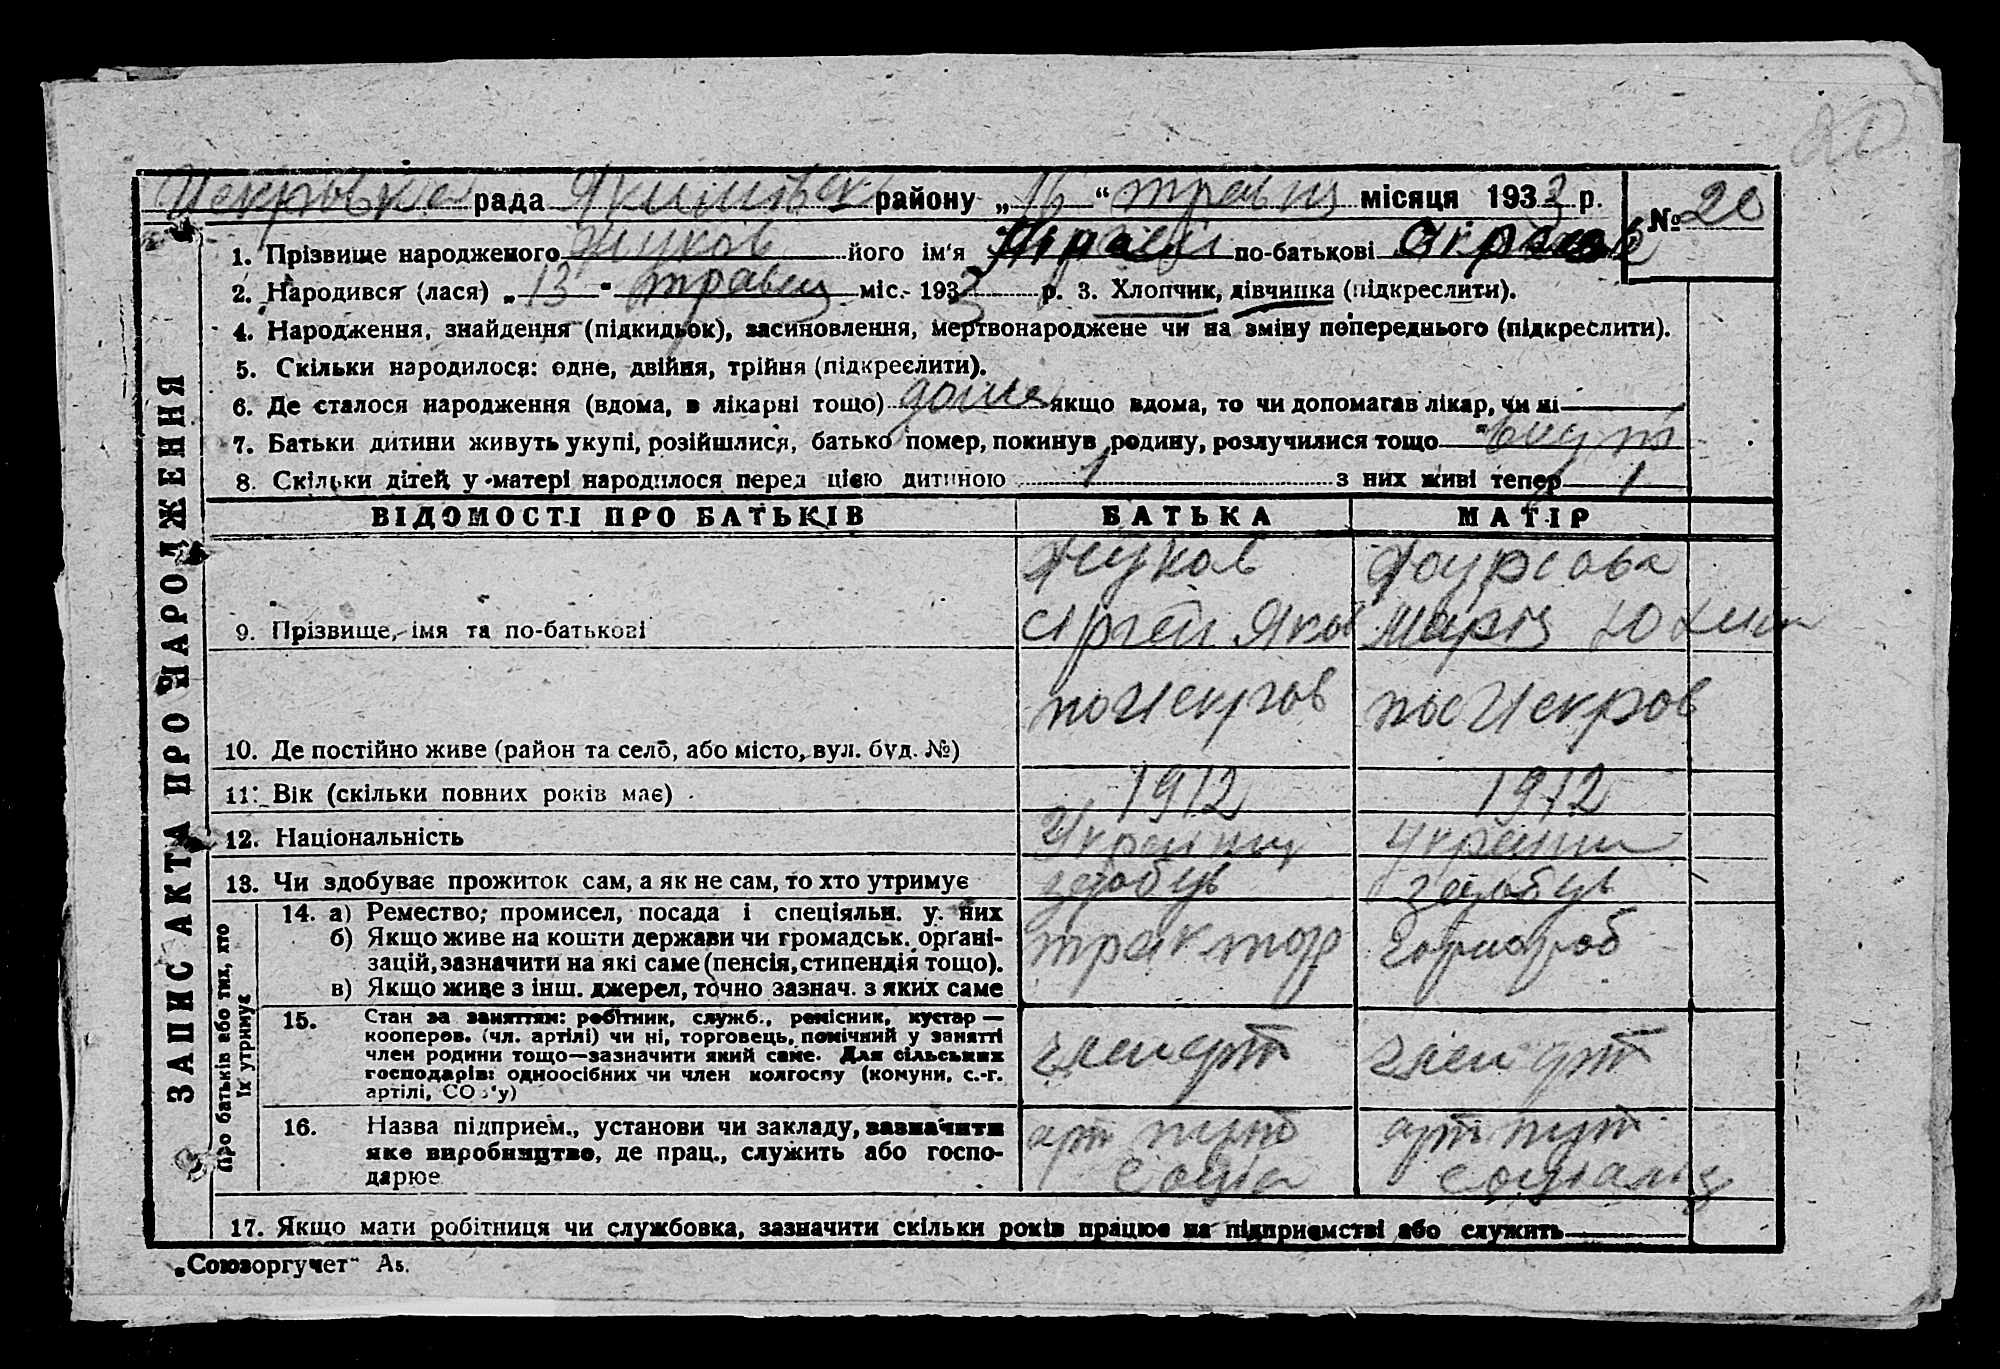 20
Искровка рада Якимовск району „16“ травня місяця 1933 р. № 20
ЗАПИС АКТА ПРО НАРОДЖЕННЯ
1. Прізвище народженого Жуков його ім‘я по-батькові
2. Народився (лася) „13“ травня міс. 1933 р. 3. Хлопчик, дівчинка (підкреслити).
4. Народження, знайдення (підкидьок), засиновлення, мертвонароджене чи на зміну попереднього (підкреслити).
5. Скільки народилося: одне, двійня, трійня (підкреслити).
6. Де сталося народження (вдома, в лікарні тощо) дома якщо вдома, то чи допомагав лікар, чи ні
7. Батьки дитини живуть укупі, розійшлися, батько помер, покинув родину, розлучилися тощо
8. Скільки дітей у матері народилося перед цією дитиною 1 з них живі тепер 1
ВІДОМОСТІ ПРО БАТЬКІВ БАТЬКА МАТІР
Жуков
9. Прізвище, імя та по-батькові Сергей Яков Мария
10. Де постійно живе (район та село, або місто, вул. буд. №) пос Искров пос Искров
11. Вік (скільки повних років має) 1912 1912
12. Національність
13. Чи здобуває прожиток сам, а як не сам, то хто утримує
Про батьків або тих, хто їх утримує
14. а) Ремество, промисел, посада і спеціяльн. у них трактор
б) Якщо живе на кошти держави чи громадськ. органі-
зацій, зазначити на які саме (пенсія, стипендія тощо).
в) Якщо живе з інш. джерел, точно зазнач. з яких саме
15. Стан за заняттям: робітник, служб., ремісник, кустар —
кооперов. (чл. артілі) чи ні, торговець, помічний у занятті
член родини тощо—зазначити який саме. Для сільських
господарів: одноосібник чи член колгоспу (комуни, с.-г.
артілі, СОЗ‘у) член арт член арт
16. Назва підприєм., установи чи закладу, зазначити арт путь арт путь
яке виробництво, де прац., служить або госпо-
дарює социа социализ
17. Якщо мати робітниця чи службовка, зазначити скільки років працює на підприємстві або служить
„Союзоргучет“ А5.